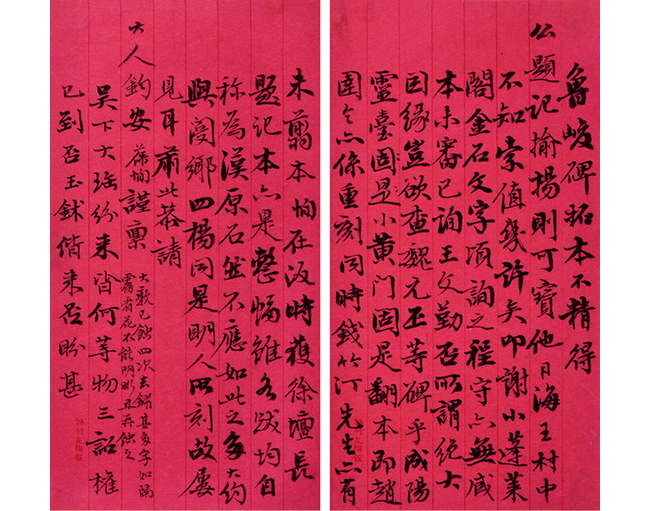 魯峻碑拓本不精得
公題記揄揚則可寶他日海王村中
不知索值幾許矣叩謝小蓬萊
閣金石文字項詢之程守亦無感
本亦未審已詢王文勤否所謂絕大
因緣豈欲查魏元丕等碑乎成陽
靈臺固是小黃門固是翻本即趙
圉令亦係重刻同時錢竹汀先生亦有
未翦本恂在汳時獲徐壇長
題記本亦是整幅雖各跋均自
稱為漢原石然不應如此之多大約
與閿鄉四楊同是明人所刻故屢
見耳肅此恭請
大人鈞安 恂謹稟
大敦已蝕四次去鏽甚多字如隔
霧看花不能明彰且再蝕之
吳下大璠紛來皆何等物三詔權
已到否玉鉥偕來否盼甚